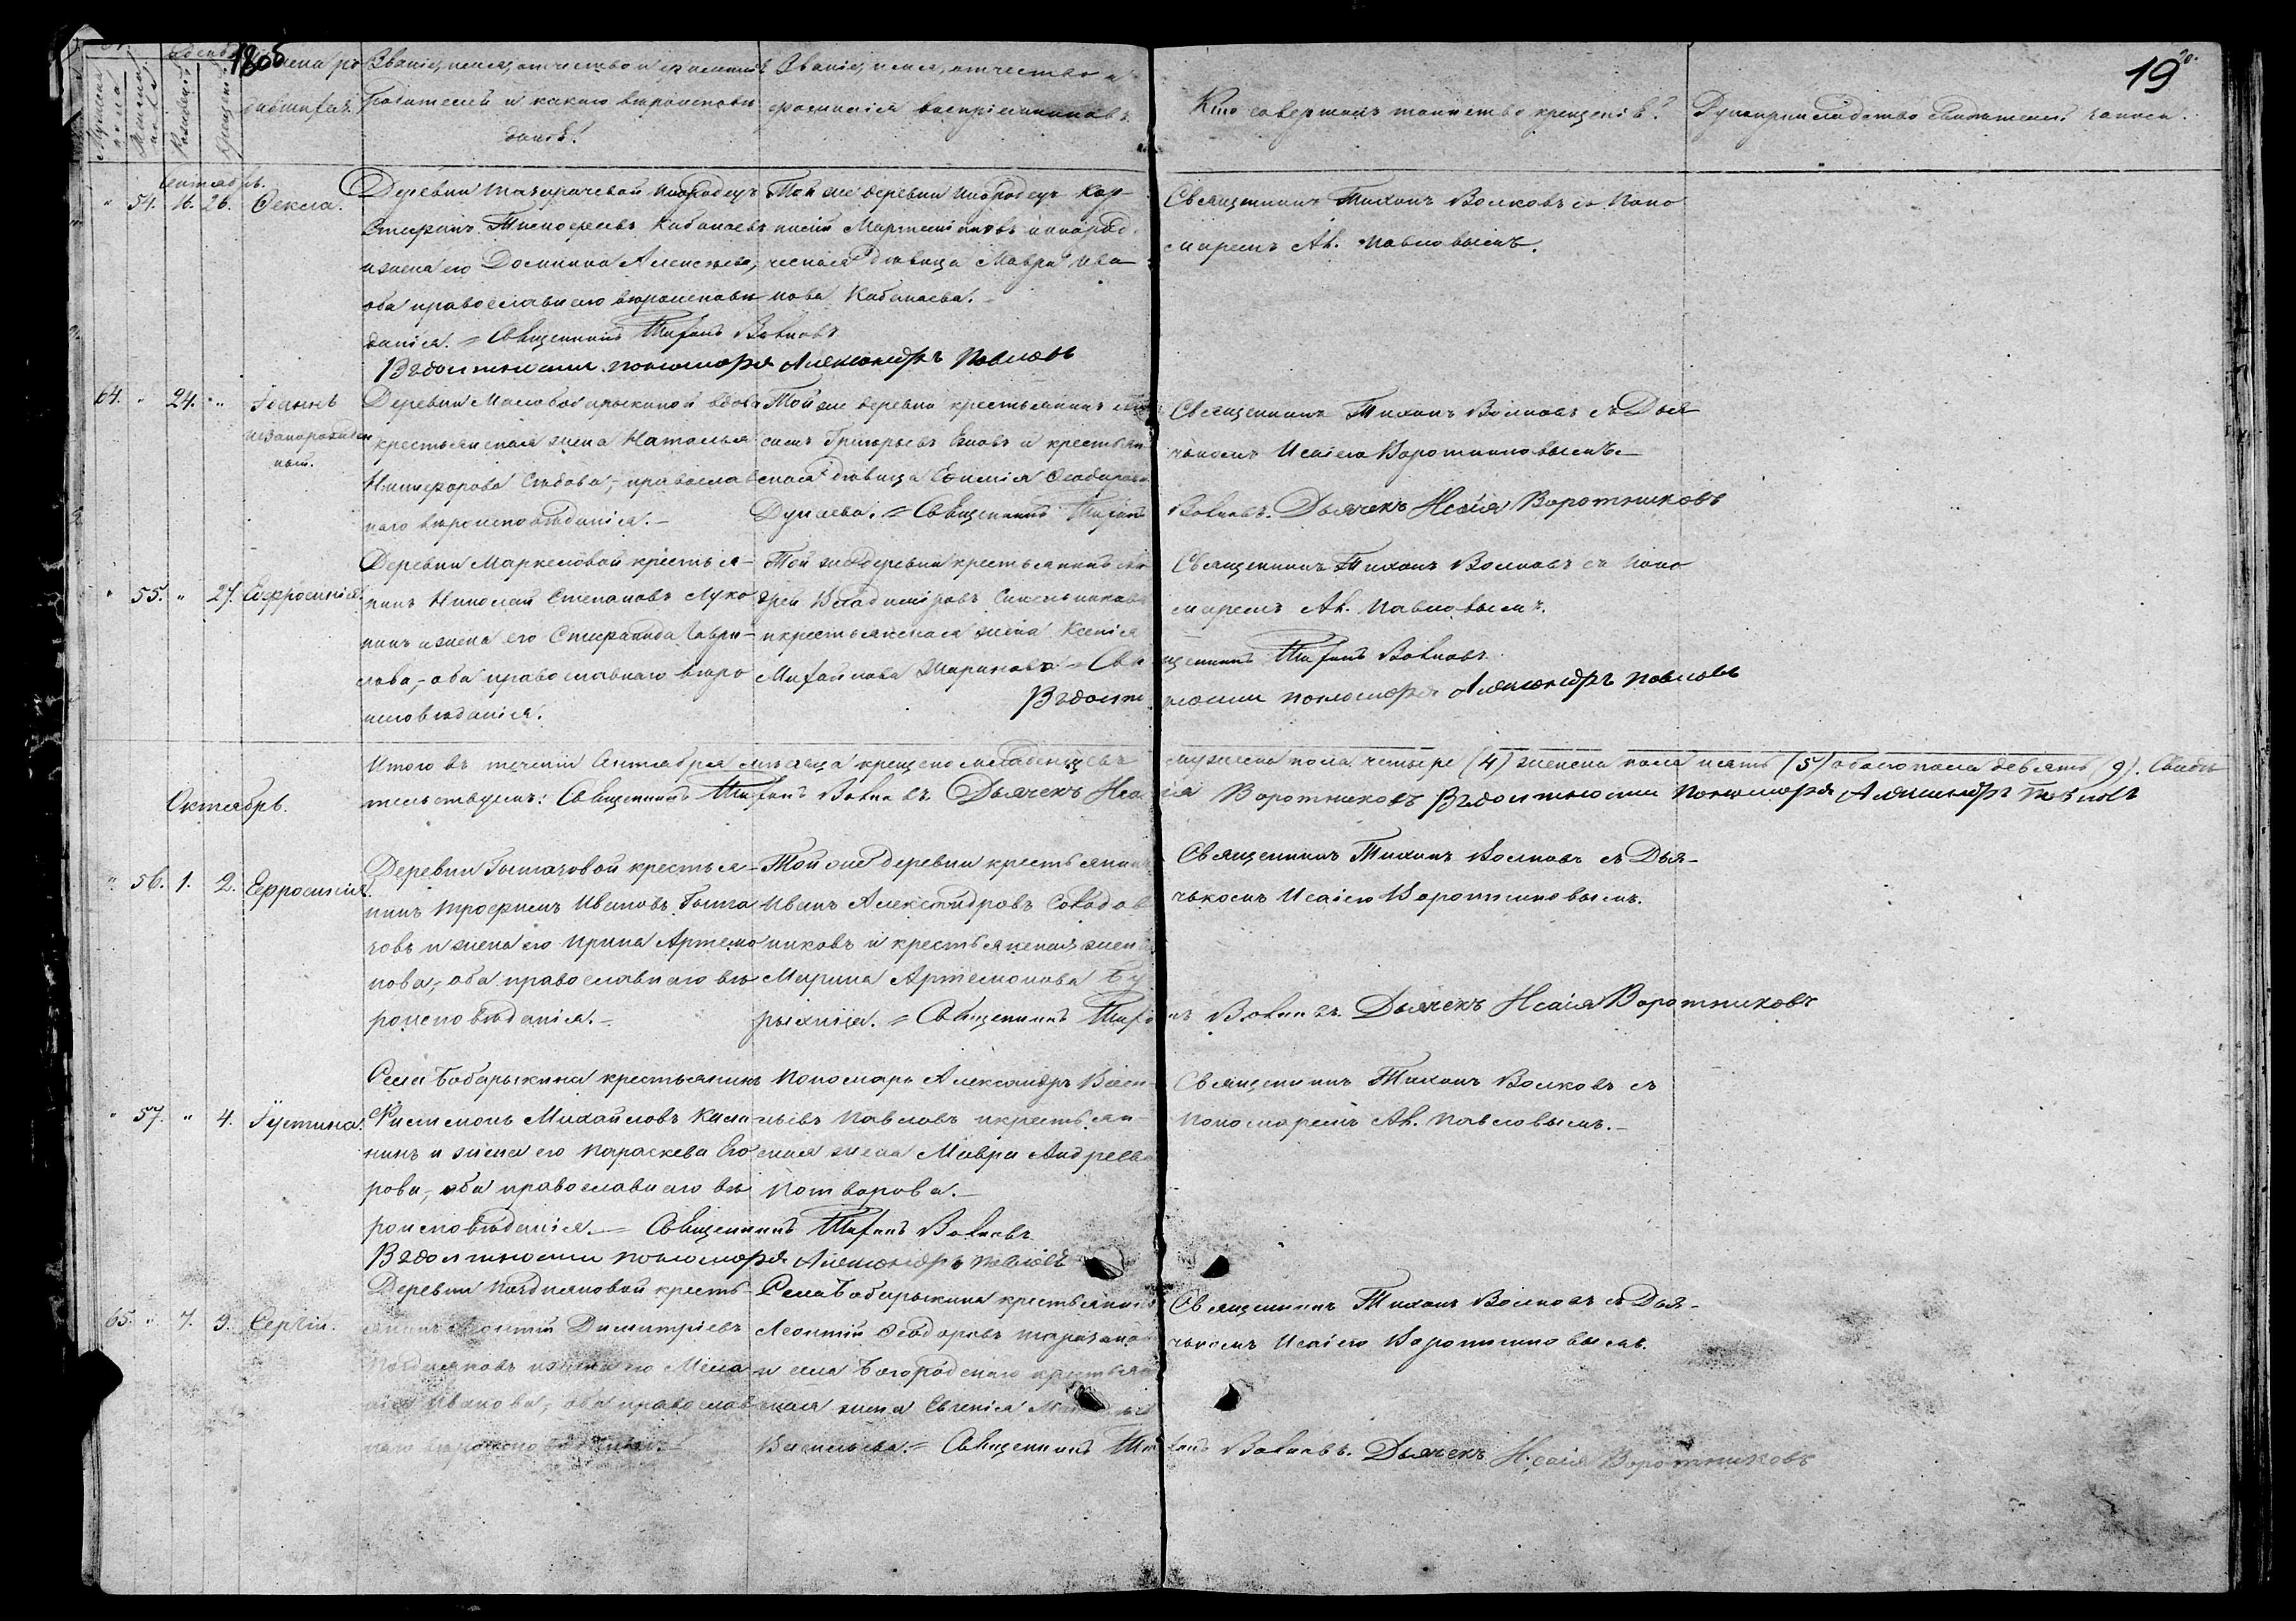 180б
19
20.
Мужеска пола
Женска пола
Рожденія
Крещенія
Имена родившихся.
Званіе, имя, отчество и фамилія
родителей и какого вѣроисповѣ
данія?
Званіе, имя, отчество и
фамилія воспріемниковъ.
Кто совершалъ таинство крещенія?
Рукоприкладство свидѣтелей записи.
Сентябрь.
" 54. 26. Ѳекла.
Деревни инородецъ
Стефанъ Кабанаевъ
и жена его Домника Алексѣева,
оба православнаго вѣроисповѣ
данія. = Священникъ Тихонъ Волковъ
Въ должности пономаря Александръ Павловъ
Той же деревни инородецъ Кор-
нилій и инород.
ческая дѣвица Мавра Ива
нова Кабанаева.
Священникъ Тихонъ Волковъ съ Поно
маремъ Ал. Павловымъ.
64. " 24. " Іоаннъ
незаконорожден
ный.
Деревни Малобобарыкиной вдова
крестьянская жена Наталья
Никифорова православ
наго вѣроисповѣданія. –
Той же деревни крестьянинъ
Григорьевъ и крестьян
ская дѣвица Ѳеодорова
Дунаева. = Священникъ Тихонъ
Священникъ Тихонъ Волковъ съ Дья
чькомъ Исаіею Воротниковымъ. –
Волковъ. Дьячекъ Исаія Воротниковъ
" 55. " 27. Евфросинія.
Деревни Маркеловой крестья-
нинъ Николай Степановъ Луко
нинъ и жена его Стефанида Гаври-
лова, – оба православнаго вѣро
исповѣданія.
Той же деревни крестьянинъ
Владиміровъ Синельниковъ
и крестьянская жена Ксенія
Михайлова = Свя
щенникъ Тихонъ Волковъ
Въ долж
ности пономаря Александръ Павловъ
Священникъ Тихонъ Волковъ съ Поно
маремъ Ал. Павловымъ.
Итого въ теченіи Сентября мѣсяца крещено младенцевъ мужеска пола четыре (4) женска пола пять (5) обоего пола девять (9). Свидѣ
тельствуемъ: Священникъ Тихонъ Волковъ Дьячекъ Исаія Воротниковъ Въ должности Пономаря Александръ Павловъ
Октябрь.
" 56. 1. 2. Евфросинія.
Деревни крестья-
нинъ Трофимъ Ивановъ
човъ и жена его Ирина Артемо
нова, – оба православнаго вѣ
роисповѣданія. –
Той же деревни крестьянинъ
Иванъ Александровъ
никовъ и крестьянская жена
Марина Артемонова Бу
рыхина. = Священникъ Тихо
нъ Волковъ. Дьячекъ Исаія Воротниковъ
Священникъ Тихонъ Волковъ съ Дья-
чькомъ Исаіею Воротниковымъ.
" 57. " 4. Іустина.
Села Бобарыкина крестьянинъ
Филимонъ Михайловъ Кали
нинъ и жена его Параскева Его
рова, – оба православнаго вѣ
роисповѣданія. – Священникъ Тихонъ Волковъ
Въ должности пономаря Александръ Павловъ
Пономарь Александръ Васи-
льевъ Павловъ и крестьян-
ская жена Мавра Андреева
Потворова. –
Священникъ Тихонъ Волковъ съ
Пономаремъ Ал. Павловымъ. –
65. " 7. 9. Сергій.
Деревни Поздняковой кресть-
янинъ Леонтій Димитріевъ
Поздняковъ и жена его Мела
нія Иванова, оба православ
наго вѣроисповѣданія. –
Села Бобарыкина крестьянинъ
Леонтій Ѳеодоровъ
и села Богородскаго крестьян
ская жена Евгенія
Васильева. = Священникъ Ти
хонъ Волковъ. Дьячекъ Исаія Воротниковъ
Священникъ Тихонъ Волковъ съ Дья-
чькомъ Исаіею Воротниковымъ.